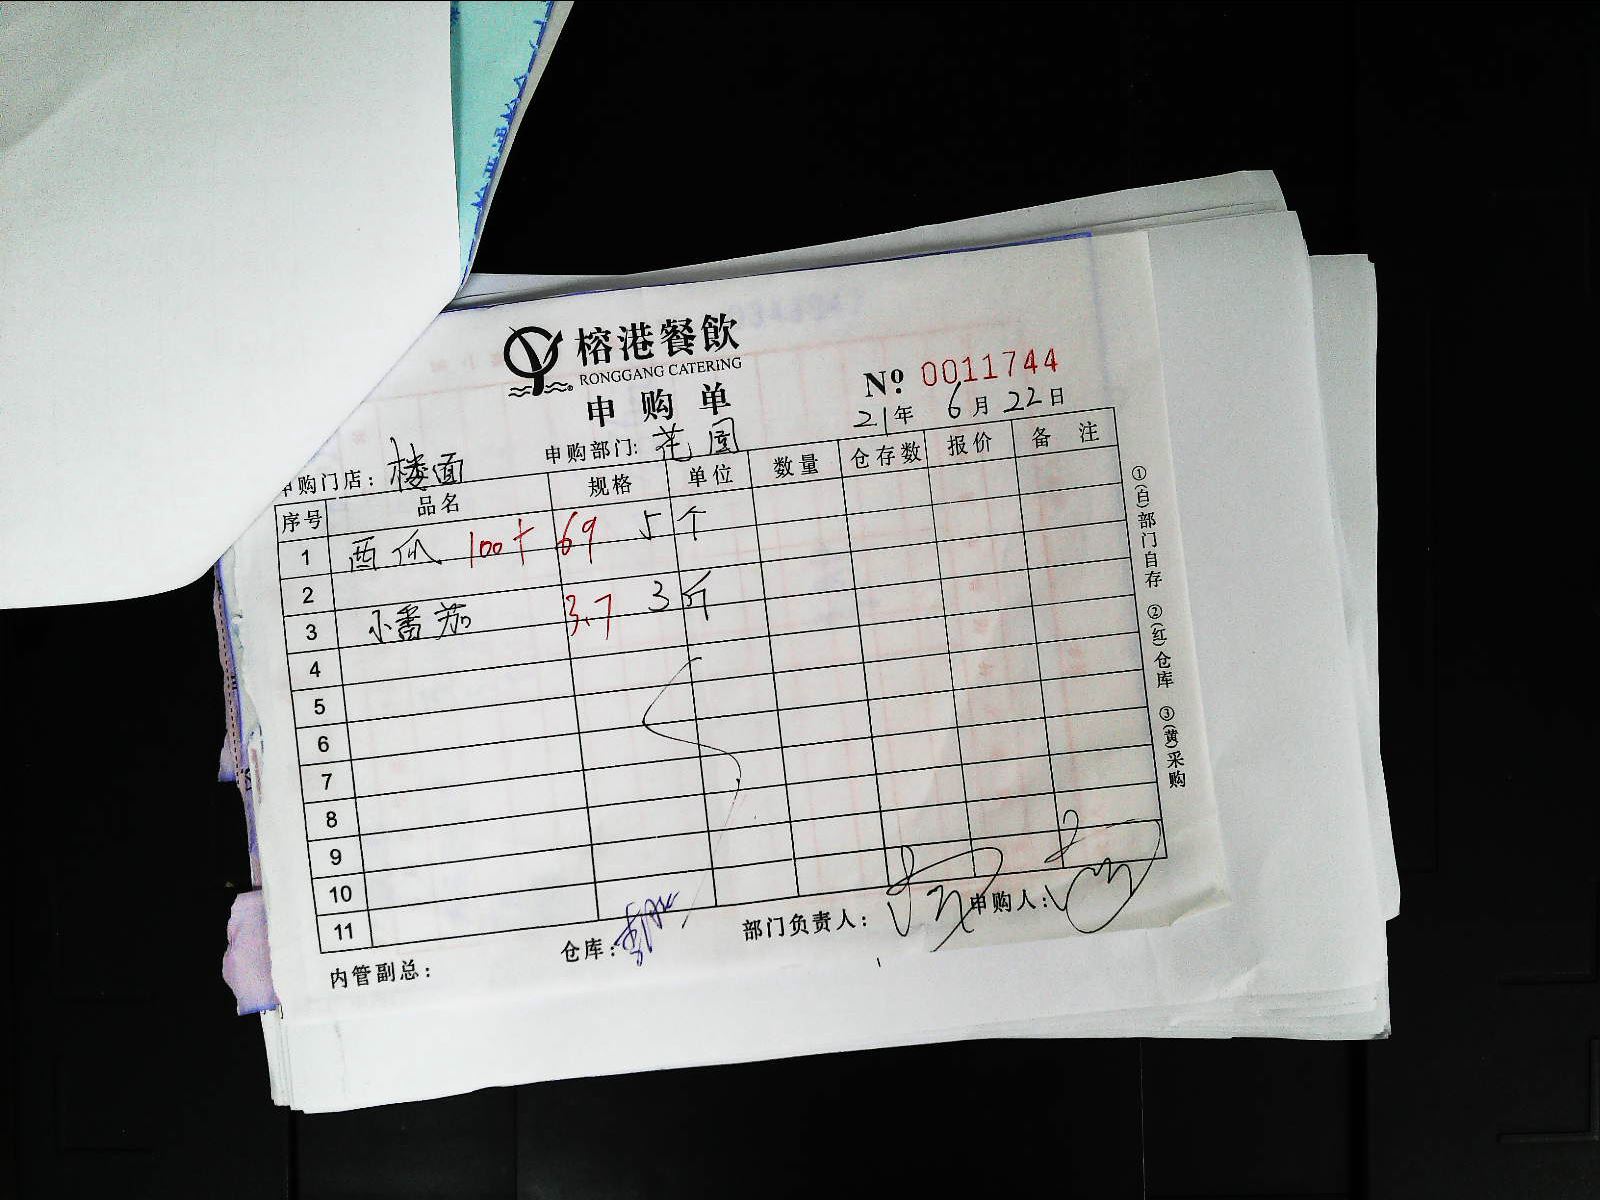 榕港餐飲
RONGGANG CATERING
申购单
Nº: 0011744
21年 6月 22日
申购门店: 楼面 申购部门: 花园
序号 品名 规格 单位 数量 仓存数 报价 备注
1 西瓜 100+ 69 5个
2
3 小番茄 3.7 3斤
4
5
6
7
8
9
10
11
内管副总: 仓库: 部门负责人: 申购人:
①(白)部门自存 ②(红)仓库 ③(黄)采购